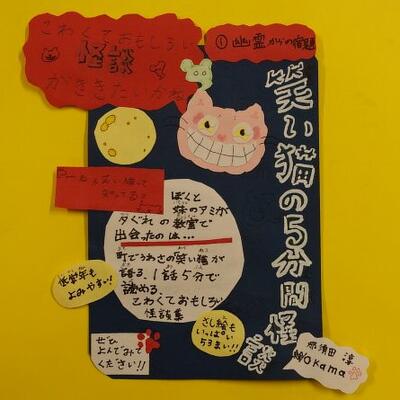 こわくておもしろい
怪談
がききたいかね
①幽霊からの宿題
笑い猫の5分間怪談
ぼくと
妹のアミが
夕ぐれの教室で
出会ったのは…
町でうわさの笑い猫が
語る、1話5分で
読める、
こわくておもしろい
怪談集
低学年も
よみやすい!!
さし絵も
いっぱい
53まい!!
ぜひ
よんでみて
ください!!
那須田 淳
絵 okama